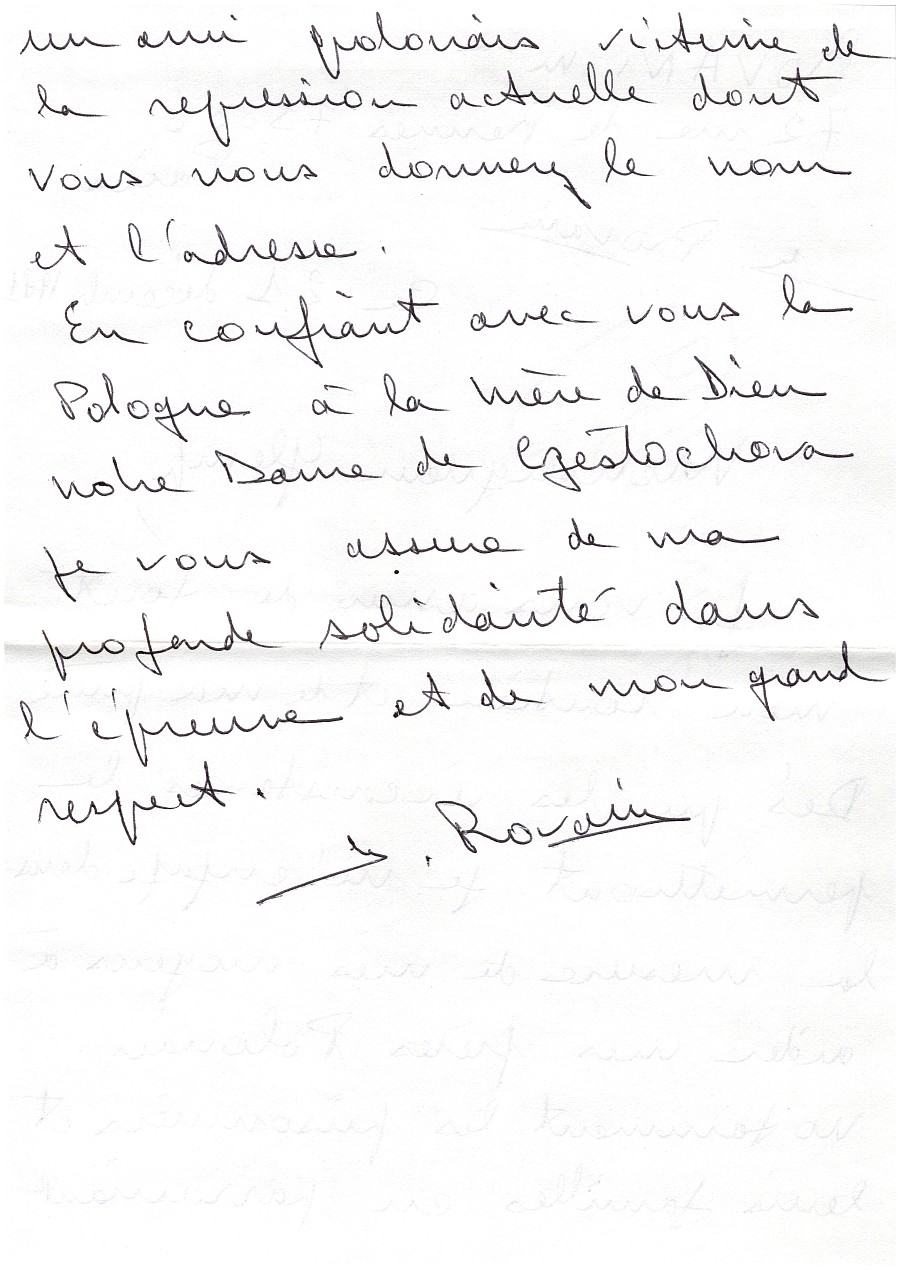 un ami polonais victime de
la repression actuelle dont
vous nous donnez le nom
et l'adresse.
En confiant avec vous la
Pologne à la Mère de Dieu
notre Dame de Częstochova
je vous assure de ma
profonde solidarité dans
l'épreuve et de mon grand
respect.
Rovani